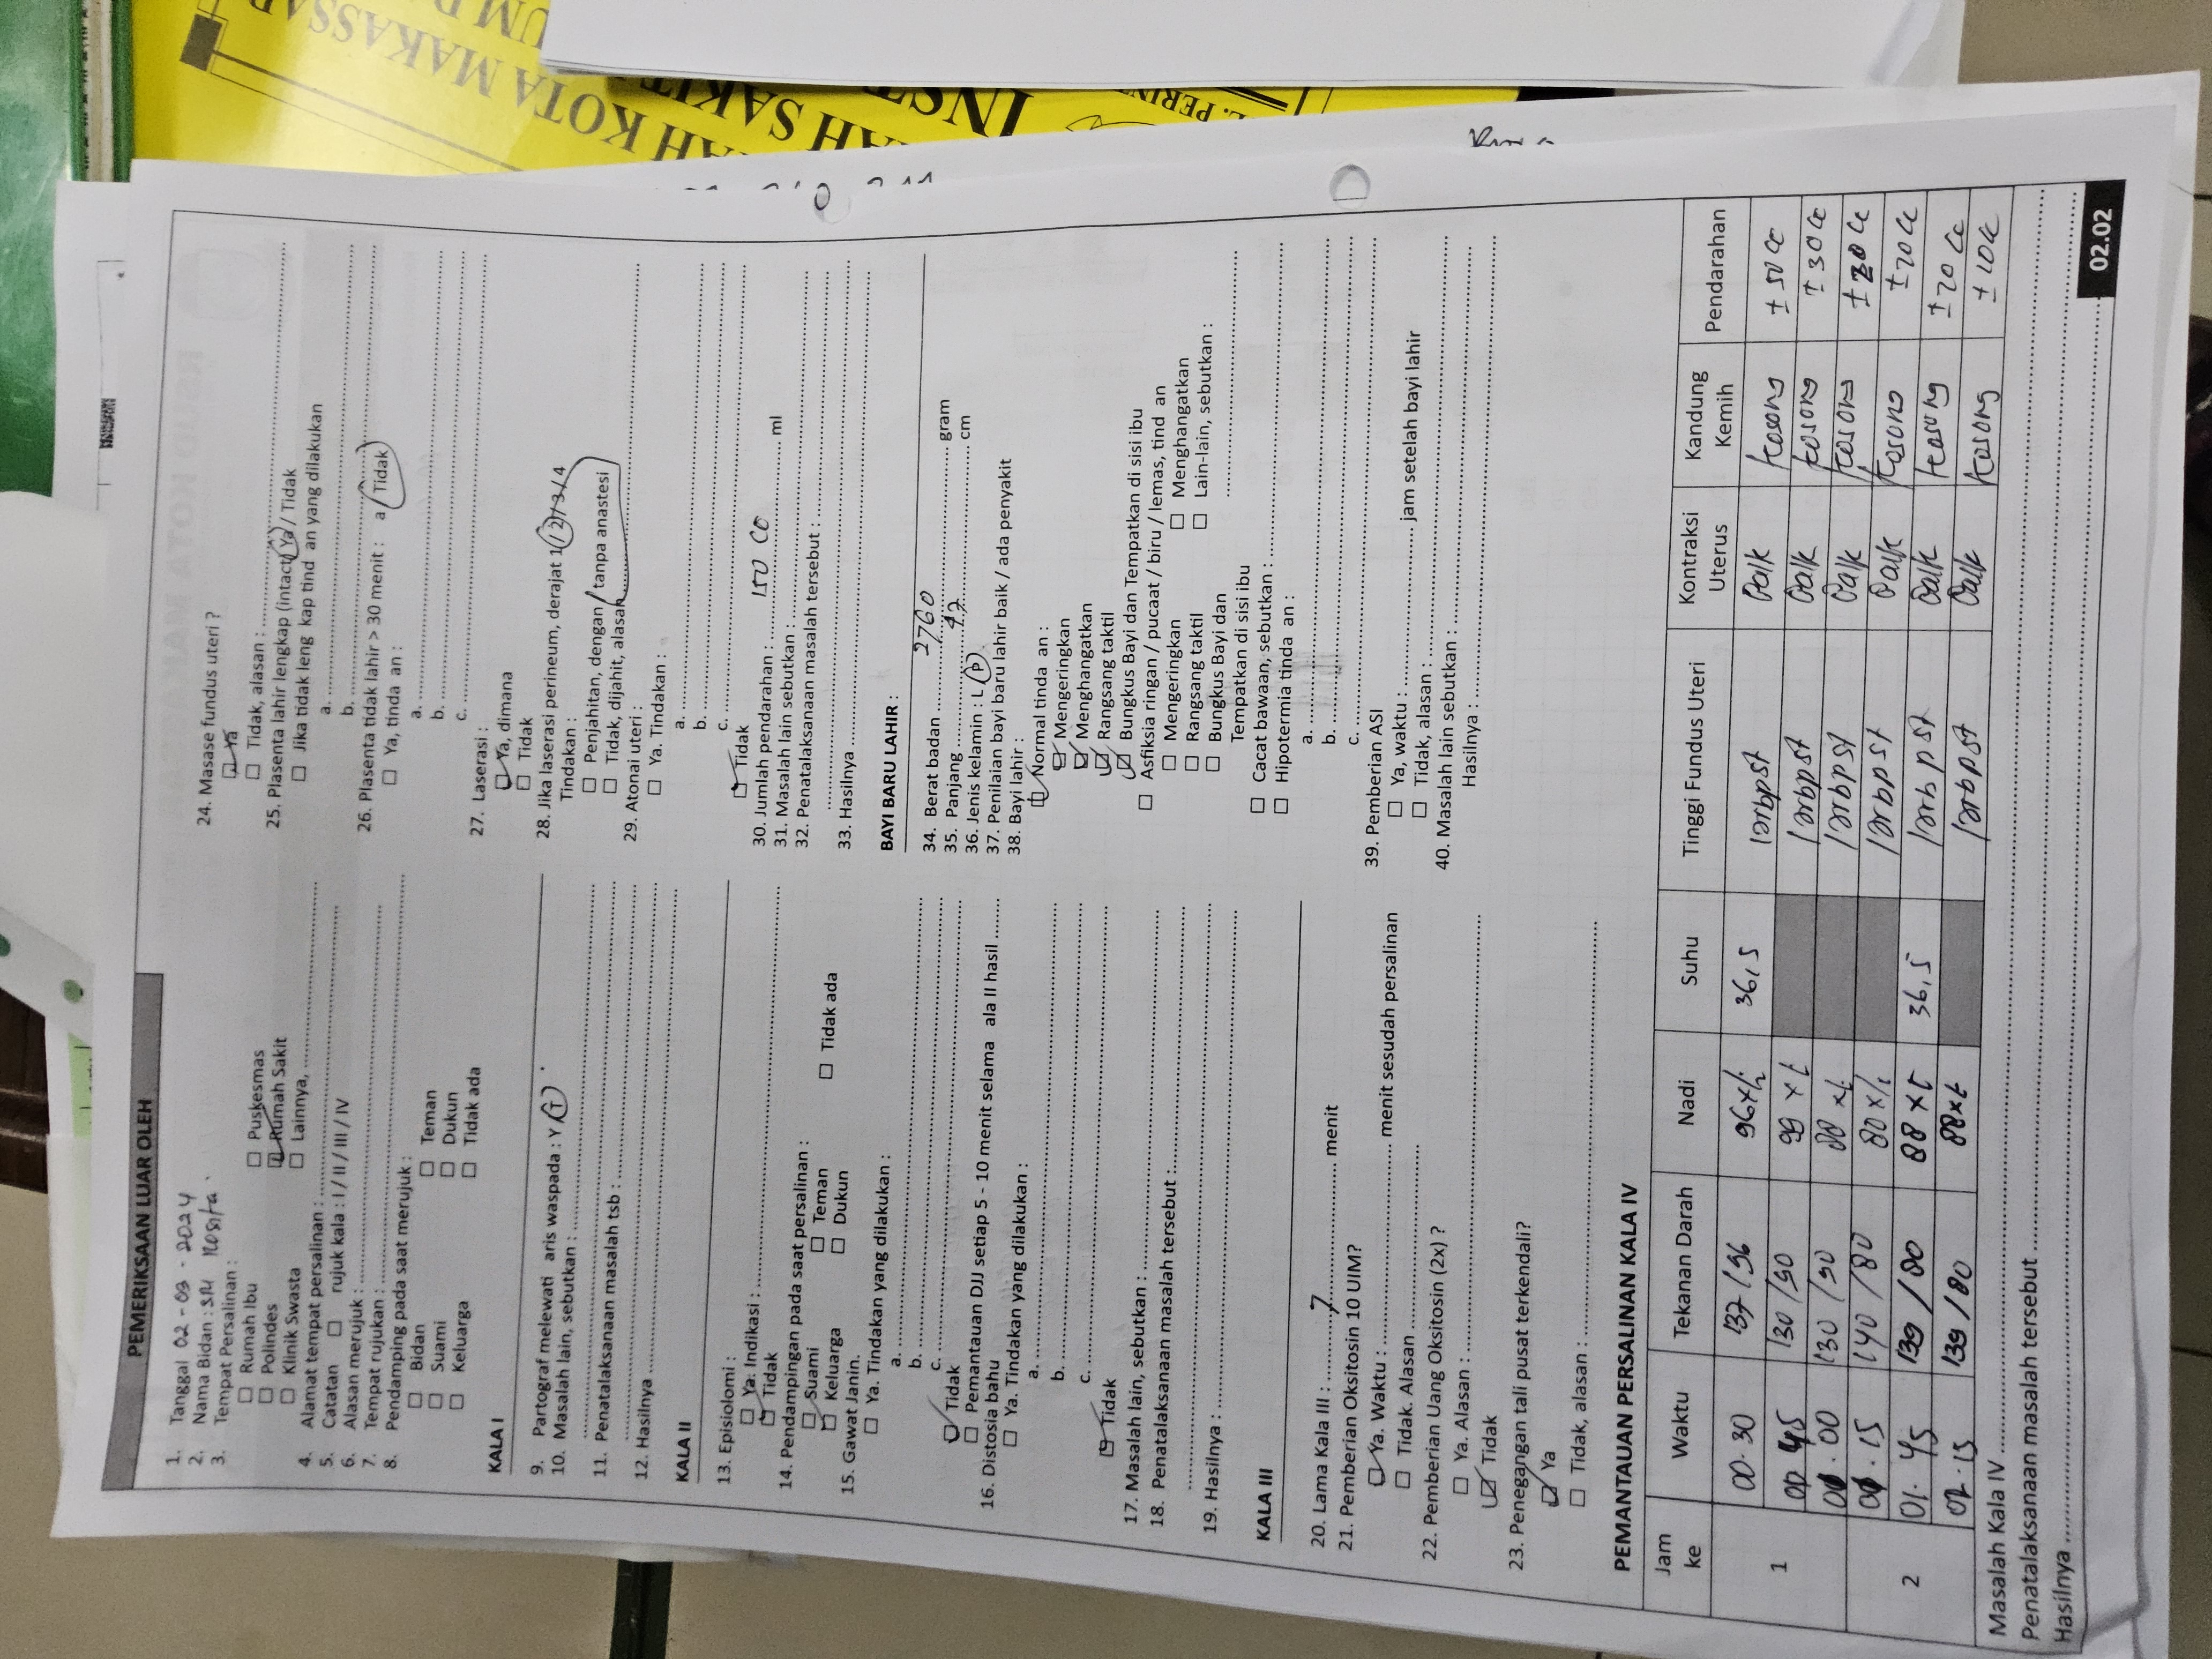 PEMERIKSAAN LUAR OLEH
1. Tanggal 02 - 09 - 2024
2. Nama Bidan : SM Rosita
3. Tempat Persalinan :
Rumah Ibu
Puskesmas
Polindes
Rumah Sakit
Klinik Swasta
Lainnya, ........
4. Alamat tempat persalinan : ........
5. Catatan rujuk kala : I / II / III / IV
6. Alasan merujuk : ........
7. Tempat rujukan : ........
8. Pendamping pada saat merujuk :
Bidan
Teman
Suami
Dukun
Keluarga
Tidak ada
KALA I
9. Partograf melewati aris waspada : Y / T
10. Masalah lain, sebutkan : ........
11. Penatalaksanaan masalah tsb : ........
12. Hasilnya ........
KALA II
13. Episiolomi :
Ya. Indikasi : ........
Tidak
14. Pendampingan pada saat persalinan :
Suami
Teman
Tidak ada
Keluarga
Dukun
15. Gawat Janin.
Ya. Tindakan yang dilakukan :
a. ........
b. ........
c. ........
Tidak
Pemantauan DJJ setiap 5 - 10 menit selama ala II hasil ........
16. Distosia bahu
Ya. Tindakan yang dilakukan :
a. ........
b. ........
c. ........
Tidak
17. Masalah lain, sebutkan : ........
18. Penatalaksanaan masalah tersebut : ........
19. Hasilnya : ........
KALA III
20. Lama Kala III : 7 menit
21. Pemberian Oksitosin 10 UIM?
Ya. Waktu : ........ menit sesudah persalinan
Tidak. Alasan ........
22. Pemberian Uang Oksitosin (2x) ?
Ya. Alasan : ........
Tidak
23. Penegangan tali pusat terkendali?
Ya
Tidak, alasan : ........
24. Masase fundus uteri ?
Ya
Tidak, alasan : ........
25. Plasenta lahir lengkap (intact) Ya / Tidak
Jika tidak leng kap tind an yang dilakukan
a. ........
b. ........
26. Plasenta tidak lahir > 30 menit : a / Tidak
Ya, tinda an :
a. ........
b. ........
c. ........
27. Laserasi :
Ya, dimana
Tidak
28. Jika laserasi perineum, derajat 1 / 2 / 3 / 4
Tindakan :
Penjahitan, dengan / tanpa anastesi
Tidak, dijahit, alasan ........
29. Atonai uteri :
Ya. Tindakan :
a. ........
b. ........
c. ........
Tidak
30. Jumlah pendarahan : 150 CC ml
31. Masalah lain sebutkan : ........
32. Penatalaksanaan masalah tersebut : ........
33. Hasilnya ........
BAYI BARU LAHIR :
34. Berat badan 2760 gram
35. Panjang 47 cm
36. Jenis kelamin : L / P
37. Penilaian bayi baru lahir baik / ada penyakit
38. Bayi lahir :
Normal tinda an :
Mengeringkan
Menghangatkan
Rangsang taktil
Bungkus Bayi dan Tempatkan di sisi ibu
Asfiksia ringan / pucaat / biru / lemas, tind an
Mengeringkan
Menghangatkan
Rangsang taktil
Lain-lain, sebutkan :
Bungkus Bayi dan
Tempatkan di sisi ibu
Cacat bawaan, sebutkan : ........
Hipotermia tinda an :
a. ........
b. ........
c. ........
39. Pemberian ASI
Ya, waktu : ........ jam setelah bayi lahir
Tidak, alasan : ........
40. Masalah lain sebutkan : ........
Hasilnya : ........
PEMANTAUAN PERSALINAN KALA IV
Jam ke Waktu Tekanan Darah Nadi Suhu Tinggi Fundus Uteri Kontraksi Uterus Kandung Kemih Pendarahan
1 00.30 137/96 96x/i 36,5 1jrbpst Baik kosong ± 50 cc
00 45 130/90 99 x/i 1jrbpst Baik kosong ± 30 cc
01.00 130/90 88 x/i 1jrbpst Baik kosong ± 20 cc
01.15 140/80 80x/i 1jrbpst Baik kosong ± 20 cc
2 01.45 139/80 88 x/i 36,5 1jrbpst Baik kosong ± 20 cc
02.15 139/80 88x/i 1jrbpst Baik kosong ± 10 cc
Masalah Kala IV ........
Penatalaksanaan masalah tersebut ........
Hasilnya ........
02.02
KOTA MAKASSAR